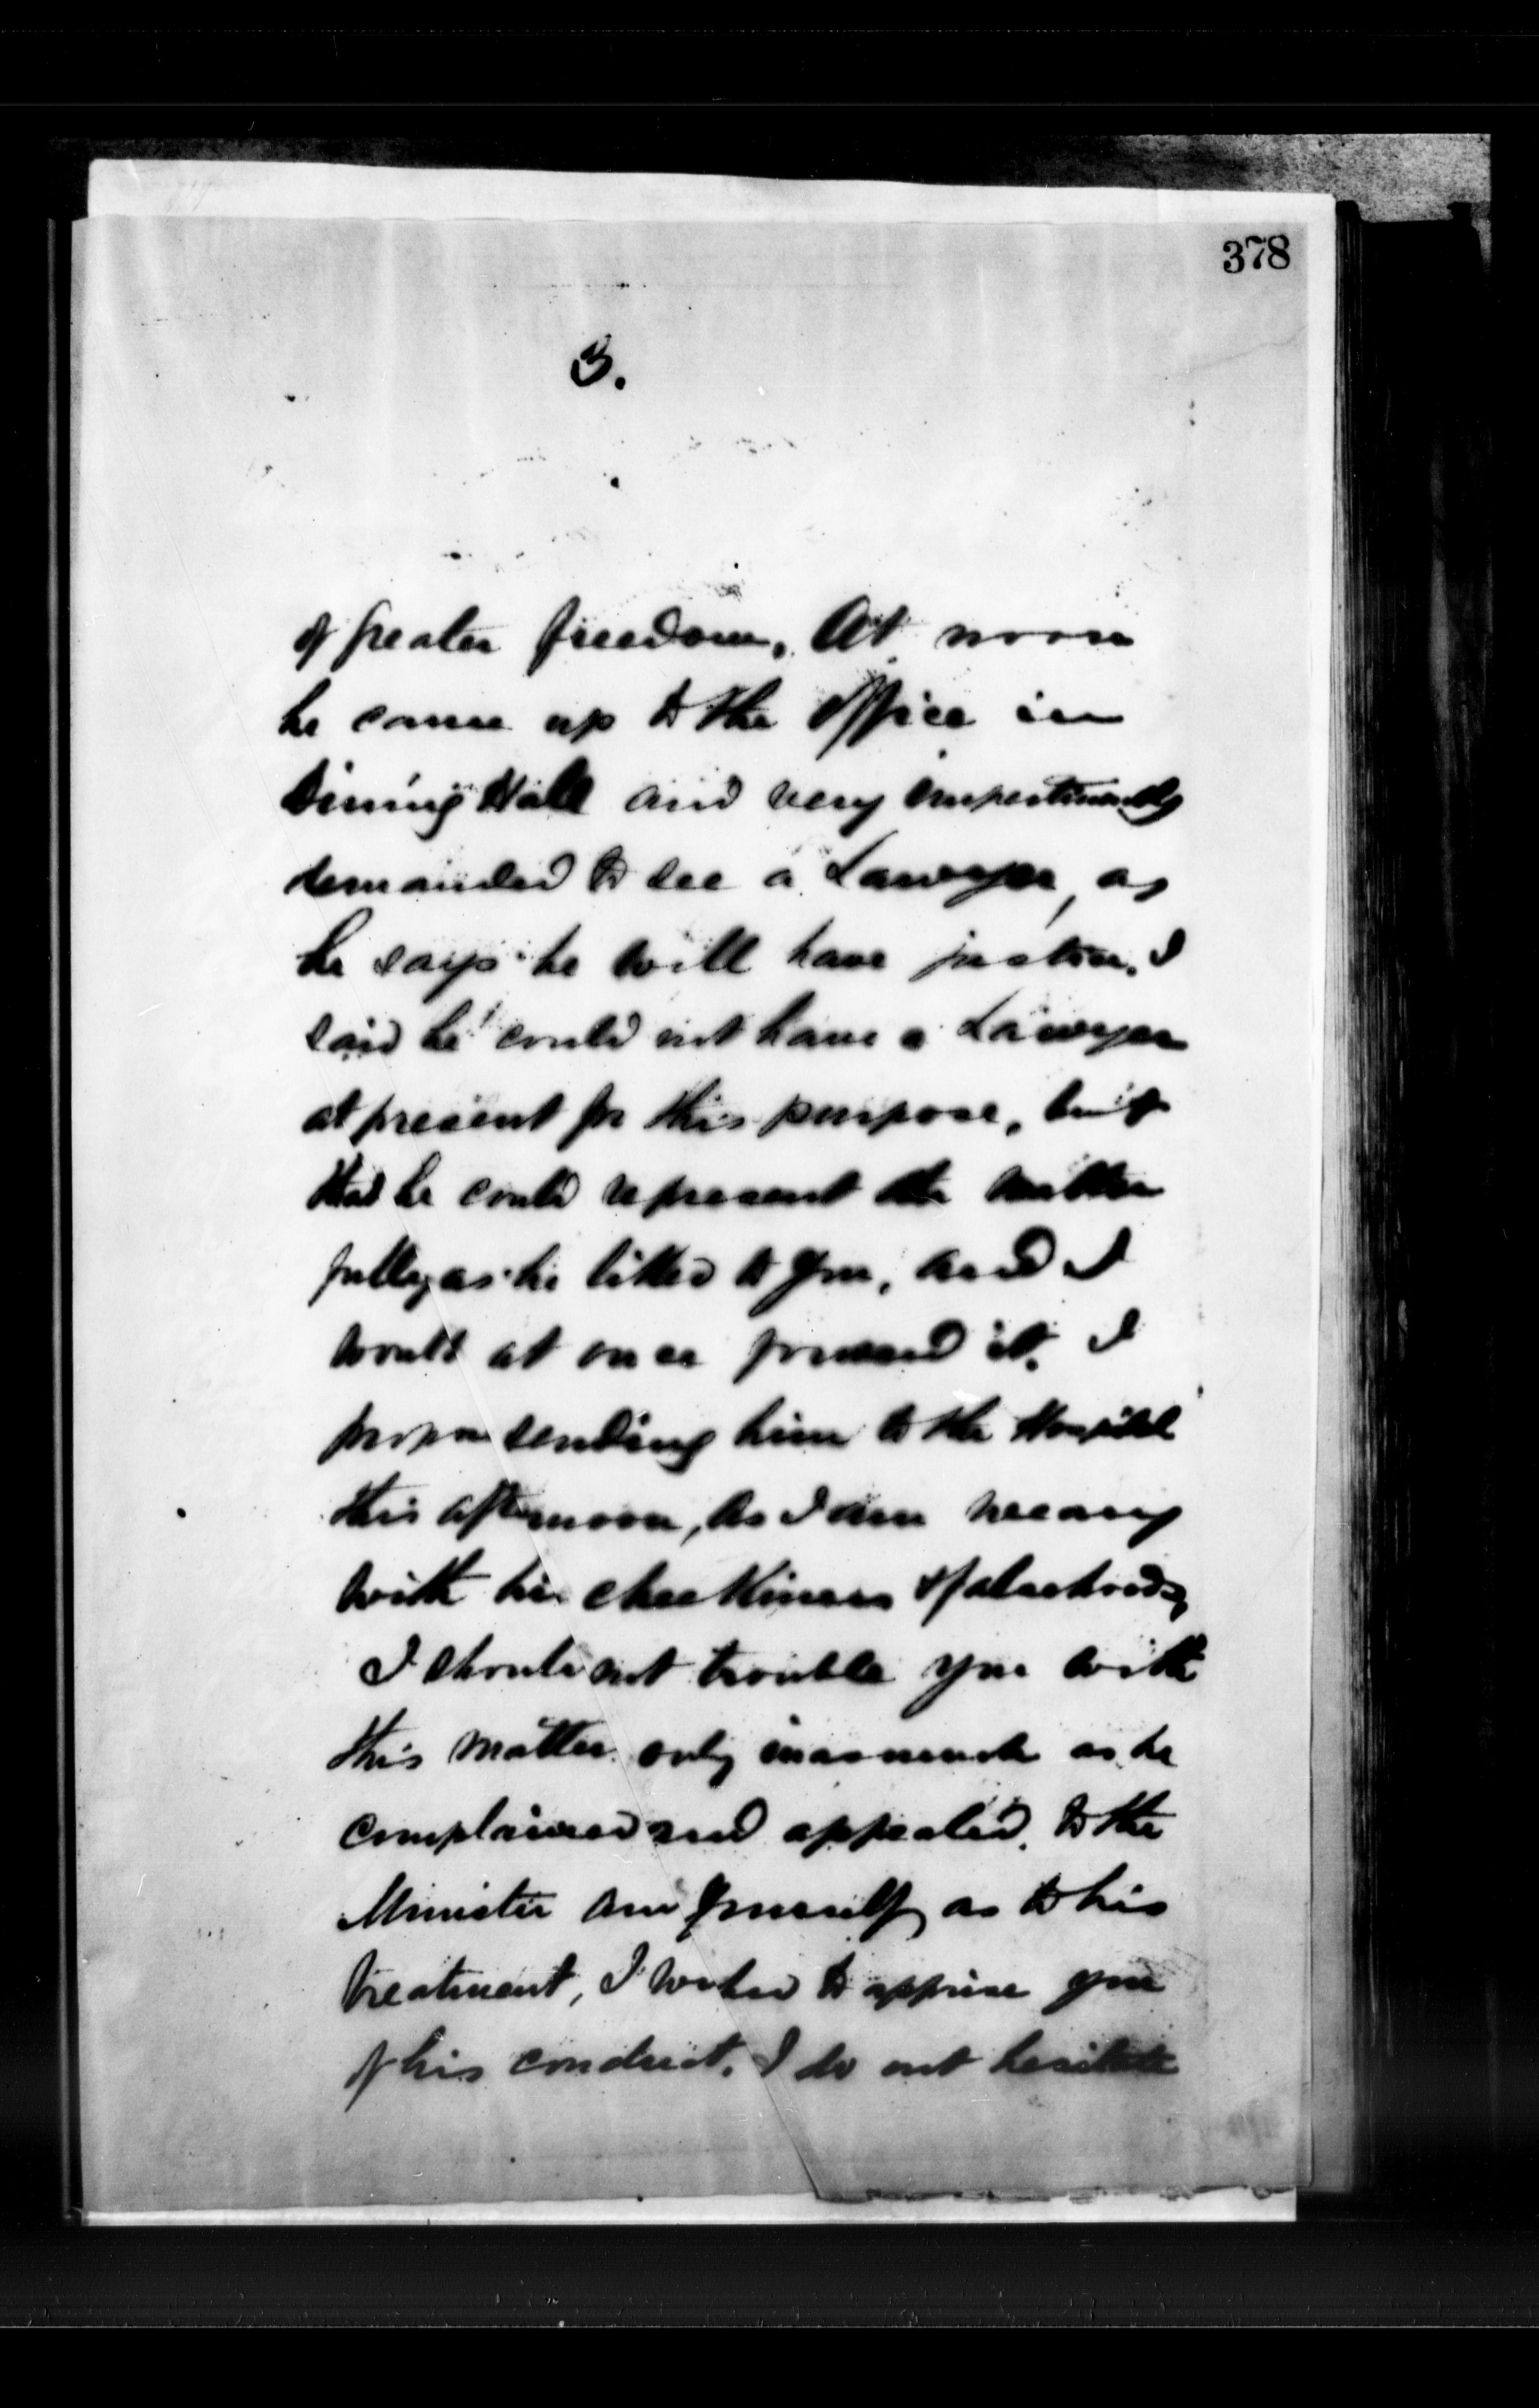 378
3.
of greater freedom. At noon
he came up to the office in
Dining Hall and very impertinently
demanded to see a Lawyer, as
he says he will have justice. I
said he could not have a Lawyer
at present for this purpose, but
that he could represent the matter
fully as he liked to you, and I
would at once forward it. I
propose sending him to the Hospital
this afternoon, as I am weary
with his cheekiness & falsehoods,
I should not trouble you with
this matter only inasmuch as he
complained and appealed to the
Minister and yourself, as to his
treatment, I wished to apprise you
of his conduct. I do not hesitate